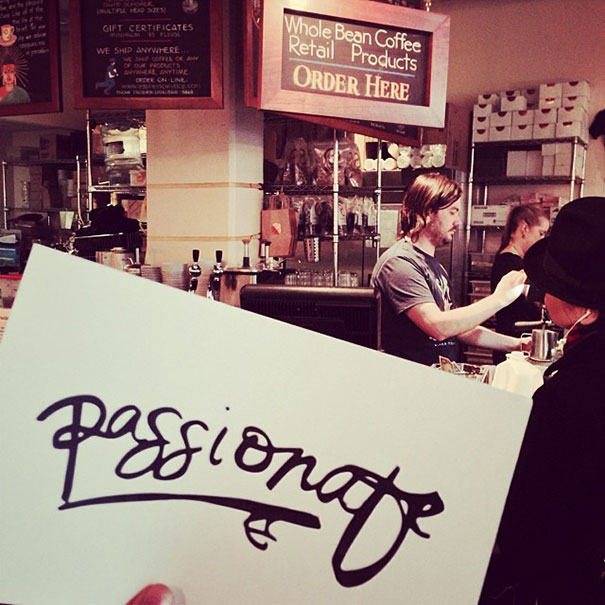 (MULTIPLE HEAD SIZES)
GIFT CERTIFICATES
MINIMUM $5 PLEASE
WE SHIP ANYWHERE...
WE SHIP COFFEE OR ANY
OF OUR PRODUCTS
ANYWHERE, ANYTIME.
ORDER ON-LINE:
Whole Bean Coffee
Retail Products
ORDER HERE
passionate